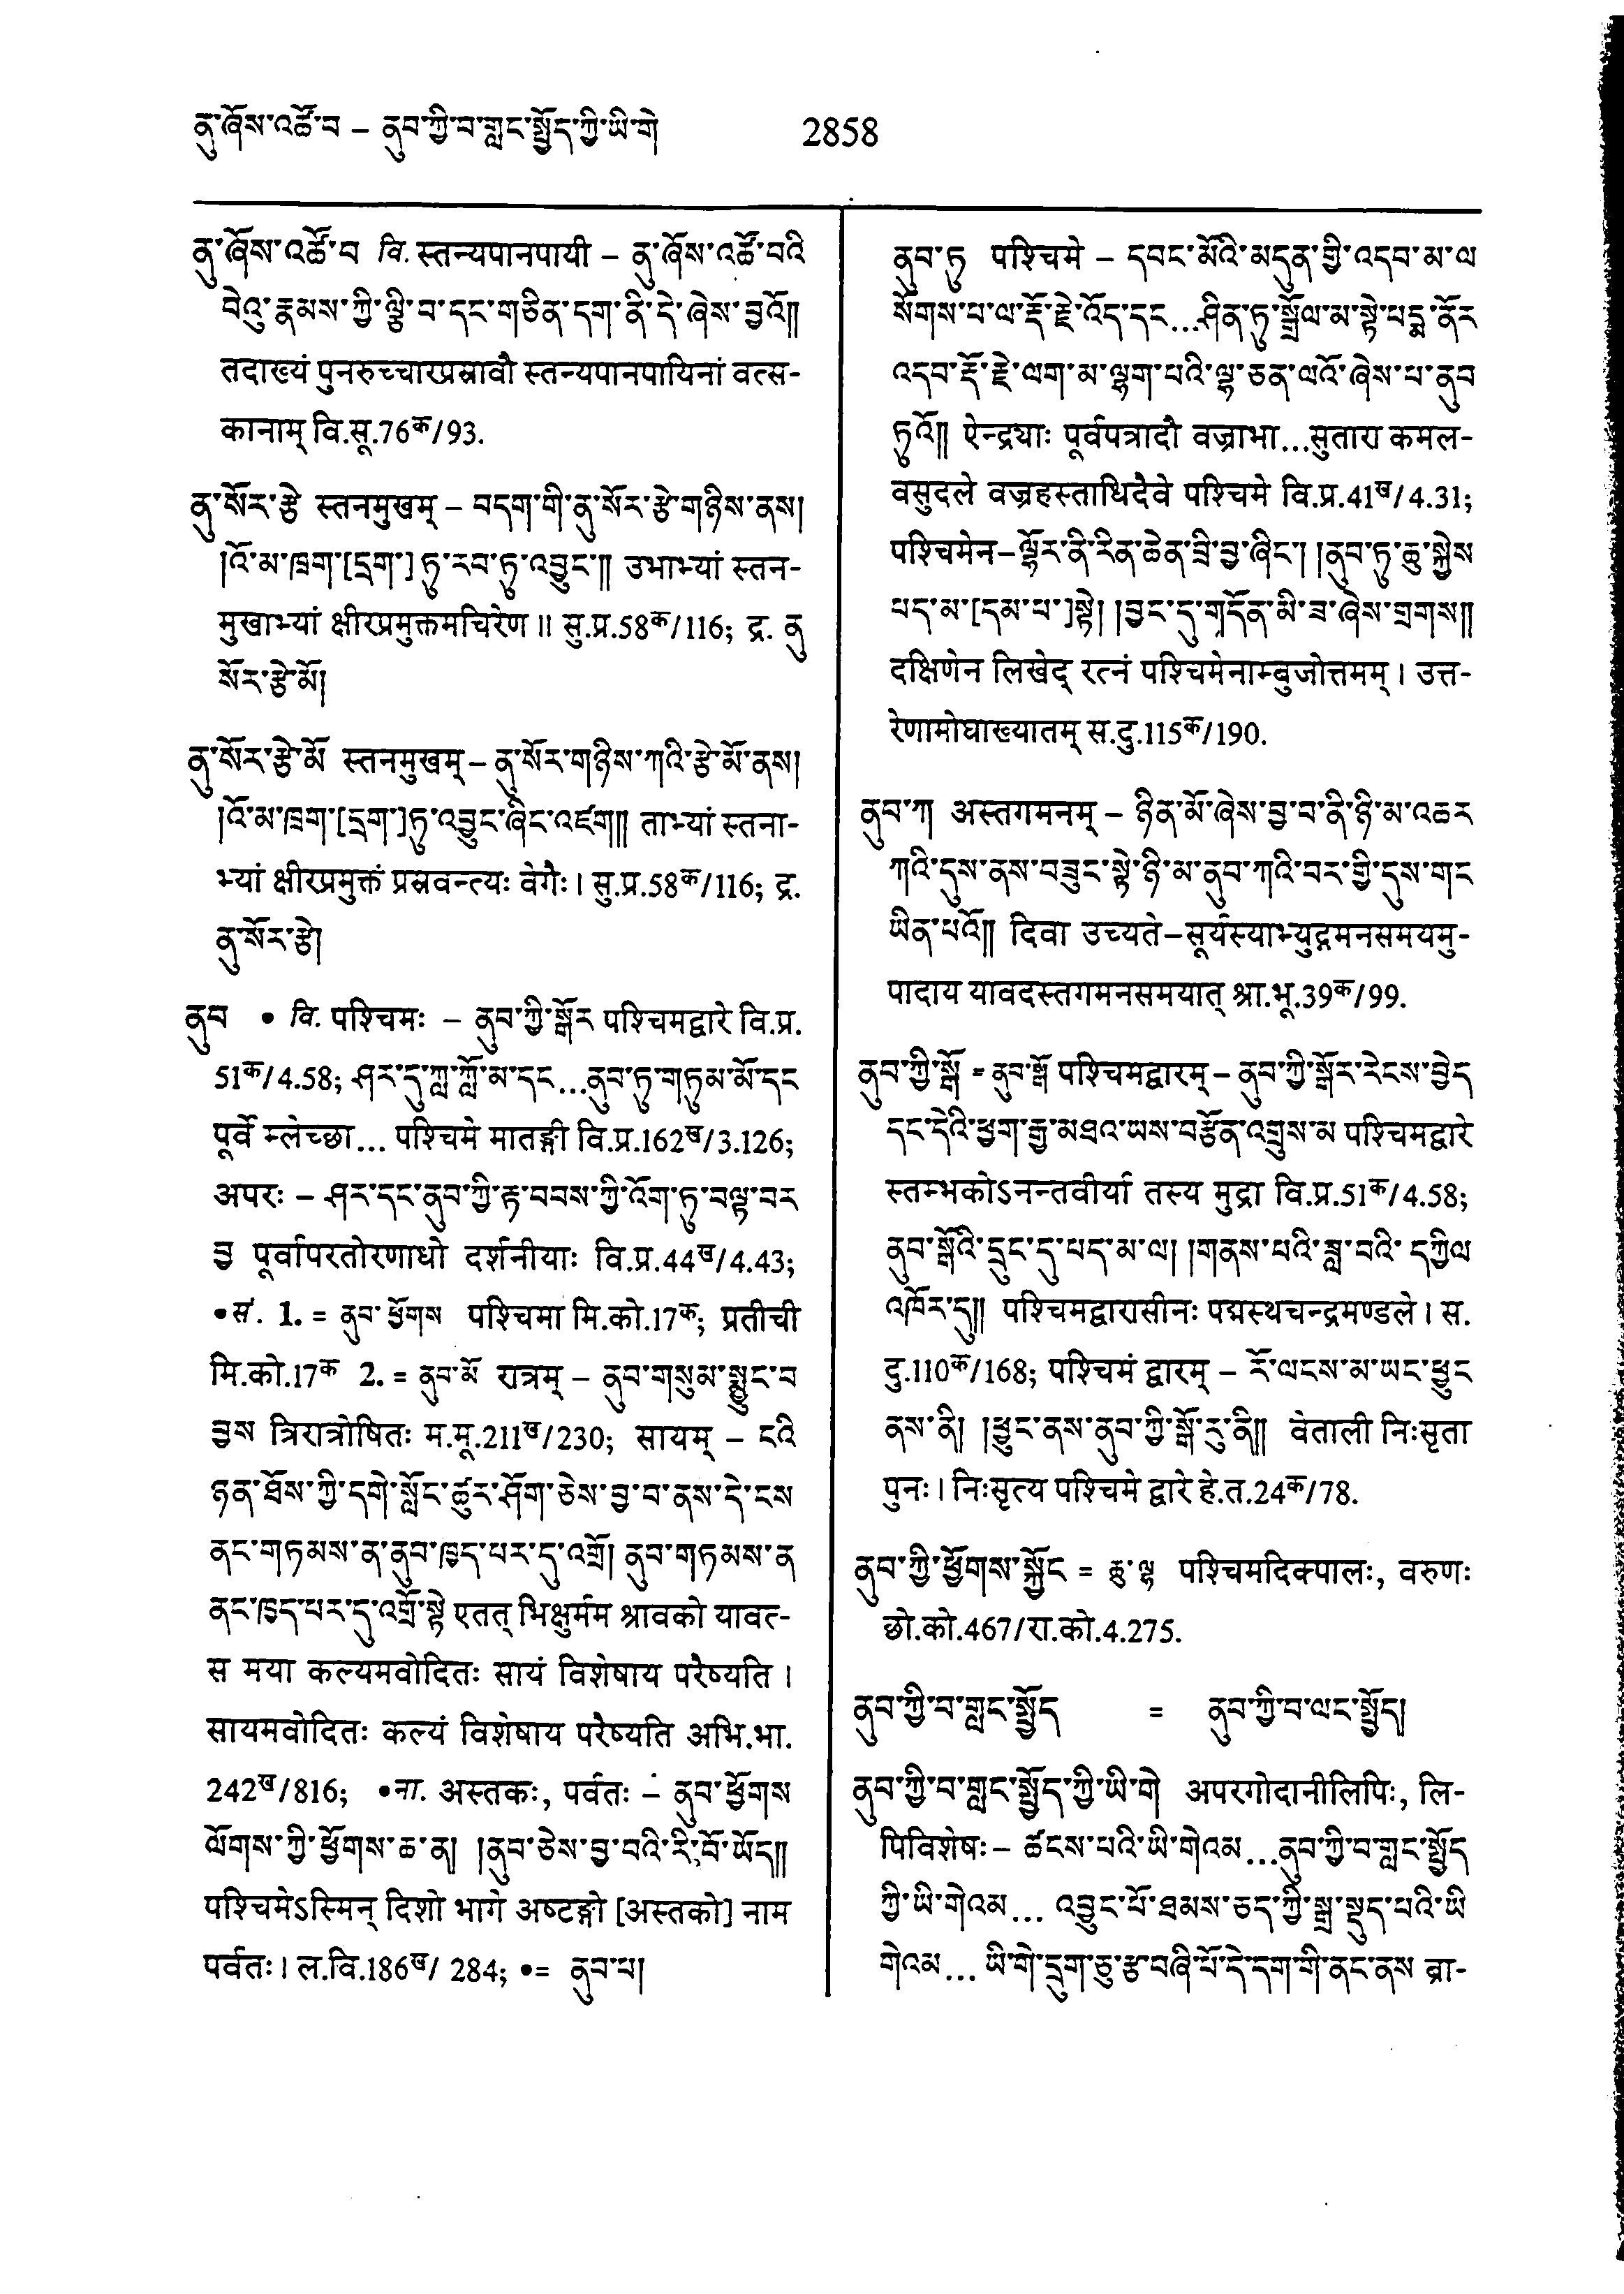 ནུ་ཞོས་འཚོ་བ – ནུབ་ཀྱི་བ་གླང་སྤྱོད་ཀྱི་ཡི་གེ 2858
ནུ་ཞོས་འཚོ་བ वि. स्तन्यपानपायी – ནུ་ཞོས་འཚོ་བའི
བེའུ་རྣམས་ཀྱི་ལྕི་བ་དང་གཅིན་དག་ནི་དེ་ཞེས་བྱའོ༎
तदाख्यं पुनरुच्चारप्रस्रावौ स्तन्यपानपायिनां वत्स-
कानाम् वि.सू.76क/93.
ནུ་སོར་རྩེ स्तनमुखम् – བདག་གི་ནུ་སོར་རྩེ་གཉིས་ནས།
།འོ་མ་ཁྲག་[དྲག་] ཏུ་རབ་ཏུ་འབྱུང་༎ उभाभ्यां स्तन-
मुखाभ्यां क्षीरप्रमुक्तमचिरेण ॥ सु.प्र.58क/116; द्र. ནུ
སོར་རྩེ་མོ།
ནུ་སོར་རྩེ་མོ स्तनमुखम् – ནུ་སོར་གཉིས་ཀའི་རྩེ་མོ་ནས།
།འོ་མ་ཁྲག་[དྲག་]ཏུ་འབྱུང་ཞིང་འཛག༎ ताभ्यां स्तना-
भ्यां क्षीरप्रमुक्तं प्रस्रवन्त्यः वेगैः। सु.प्र.58क/116; द्र.
ནུ་སོར་རྩེ།
ནུབ • वि. पश्चिमः – ནུབ་ཀྱི་སྒོར पश्चिमद्वारे वि.प्र.
51क/4.58; ཤར་དུ་ཀླ་ཀློ་མ་དང་...ནུབ་ཏུ་གཏུམ་མོ་དང
पूर्वे म्लेच्छा... पश्चिमे मातङ्गी वि.प्र.162ख/3.126;
अपरः – ཤར་དང་ནུབ་ཀྱི་རྟ་བབས་ཀྱི་འོག་ཏུ་བལྟ་བར
བྱ पूर्वापरतोरणाधो दर्शनीयाः वि.प्र.44ख/4.43;
•सं. 1. = ནུབ་ཕྱོགས पश्चिमा मि.को.17क; प्रतीची
मि.को.17क 2. = ནུབ་མོ रात्रम् – ནུབ་གསུམ་སྨྱུང་བ
བྱས त्रिरात्रोषितः म.मू.211ख/230; सायम् – ངའི
ཉན་ཐོས་ཀྱི་དགེ་སློང་ཚུར་ཤོག་ཅེས་བྱ་བ་ནས་དེ་ངས
ནང་གཏམས་ན་ནུབ་ཁྱད་པར་དུ་འགྲོ། ནུབ་གཏམས་ན
ནང་ཁྱད་པར་དུ་འགྲོ་སྟེ एतत् भिक्षुर्मम श्रावको यावत्-
स मया कल्यमवोदितः सायं विशेषाय परैष्यति।
सायमवोदितः कल्यं विशेषाय परैष्यति अभि.भा.
242ख/816; •ना. अस्तकः, पर्वतः – ནུབ་ཕྱོགས
ལོགས་ཀྱི་ཕྱོགས་ཆ་ན། །ནུབ་ཅེས་བྱ་བའི་རི་བོ་ཡོད༎
पश्चिमेऽस्मिन् दिशो भागे अष्टङ्गो [अस्तको] नाम
पर्वतः। ल.वि.186ख/ 284; •= ནུབ་པ།
ནུབ་ཏུ पश्चिमे – དབང་མོའི་མདུན་གྱི་འདབ་མ་ལ
སོགས་པ་ལ་རྡོ་རྗེ་འོད་དང་...ཤིན་ཏུ་སྒྲོལ་མ་སྟེ་པདྨ་ནོར
འདབ་རྡོ་རྗེ་ལག་མ་ལྷག་པའི་ལྷ་ཅན་ལའོ་ཞེས་པ་ནུབ
ཏུའོ༎ ऐन्द्र्याः पूर्वपत्रादौ वज्राभा...सुतारा कमल-
वसुदले वज्रहस्ताधिदैवे पश्चिमे वि.प्र.41ख/4.31;
पश्चिमेन–ལྷོར་ནི་རིན་ཆེན་བྲི་བྱ་ཞིང་། །ནུབ་ཏུ་ཆུ་སྐྱེས
པད་མ་[དམ་པ་]སྟེ། །བྱང་དུ་གདོན་མི་ཟ་ཞེས་གྲགས༎
दक्षिणेन लिखेद् रत्नं पश्चिमेनाम्बुजोत्तमम्। उत्त-
रेणामोघाख्यातम् स.दु.115क/190.
ནུབ་ཀ अस्तगमनम् – ཉིན་མོ་ཞེས་བྱ་བ་ནི་ཉི་མ་འཆར
ཀའི་དུས་ནས་བཟུང་སྟེ་ཉི་མ་ནུབ་ཀའི་བར་གྱི་དུས་གང
ཡིན་པའོ༎ दिवा उच्यते–सूर्यस्याभ्युद्गमनसमयमु-
पादाय यावदस्तगमनसमयात् श्रा.भू.39क/99.
ནུབ་ཀྱི་སྒོ = ནུབ་སྒོ पश्चिमद्वारम् – ནུབ་ཀྱི་སྒོར་རེངས་བྱེད
དང་དེའི་ཕྱག་རྒྱ་མཐའ་ཡས་བརྩོན་འགྲུས་མ पश्चिमद्वारे
स्तम्भकोऽनन्तवीर्या तस्य मुद्रा वि.प्र.51क/4.58;
ནུབ་སྒོའི་དྲུང་དུ་པད་མ་ལ། །གནས་པའི་ཟླ་བའི་ དཀྱིལ
འཁོར་དུ༎ पश्चिमद्वारासीनः पद्मस्थचन्द्रमण्डले। स.
दु.110क/168; पश्चिमं द्वारम् – རོ་ལངས་མ་ཡང་ཕྱུང
ནས་ནི། །ཕྱུང་ནས་ནུབ་ཀྱི་སྒོ་རུ་ནི༎ वेताली निःसृता
पुनः। निःसृत्य पश्चिमे द्वारे हे.त.24क/78.
ནུབ་ཀྱི་ཕྱོགས་སྐྱོང = ཆུ་ལྷ पश्चिमदिक्पालः, वरुणः
छो.को.467/रा.को.4.275.
ནུབ་ཀྱི་བ་གླང་སྤྱོད = ནུབ་ཀྱི་བ་ལང་སྤྱོད།
ནུབ་ཀྱི་བ་གླང་སྤྱོད་ཀྱི་ཡི་གེ अपरगोदानीलिपिः, लि-
पिविशेषः – ཚངས་པའི་ཡི་གེའམ...ནུབ་ཀྱི་བ་གླང་སྤྱོད
ཀྱི་ཡི་གེའམ... འབྱུང་པོ་ཐམས་ཅད་ཀྱི་སྒྲ་སྡུད་པའི་ཡི
གེའམ... ཡི་གེ་དྲུག་ཅུ་རྩ་བཞི་པོ་དེ་དག་གི་ནང་ནས ब्रा-